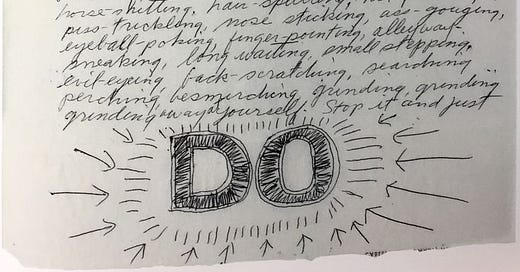 horse-shitting, hair-splitting,
piss-trickling, nose sticking, ass-gouging,
eyeball-poking, finger-pointing, alleyway-
sneaking, long waiting, small stepping,
evil-eyeing, back-scratching, searching
perching, besmirching, grinding, grinding
grinding away at yourself. Stop it and just
DO